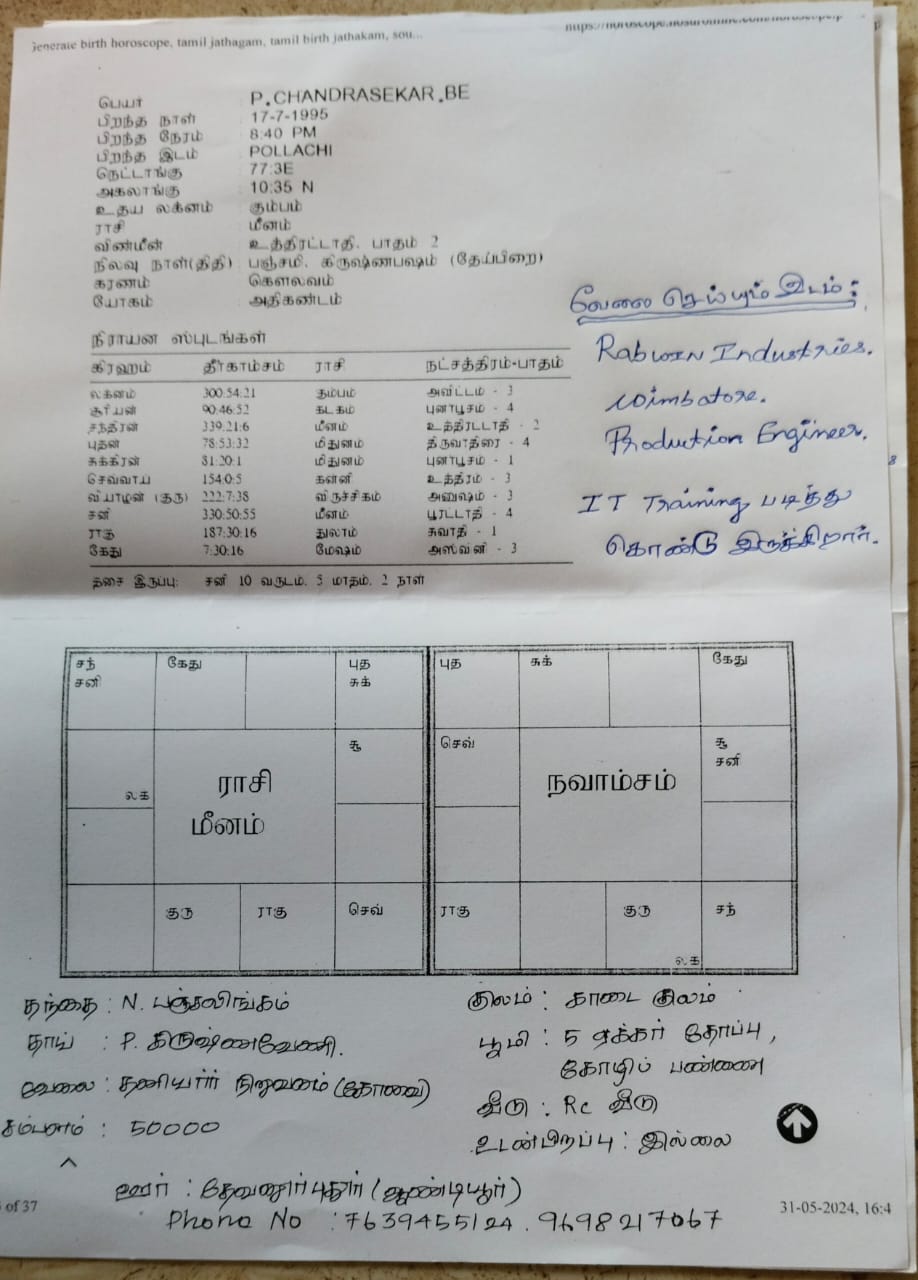 Generate birth horoscope, tamil jathagam, tamil birth jathakam, sou...
பெயர் P.CHANDRASEKAR.BE
பிறந்த நாள் 17-7-1995
பிறந்த நேரம் 8:40 PM
பிறந்த இடம் POLLACHI
நெட்டாங்கு 77:3E
அகலாங்கு 10:35 N
உதய லக்னம் கும்பம்
ராசி மீனம்
விண்மீன் உத்திரட்டாதி, பாதம் 2
நிலவு நாள்(திதி) பஞ்சமி, கிருஷ்ணபஷம் (தேய்பிறை)
கரணம் கௌலவம்
யோகம் அதிகண்டம்
நிராயன ஸ்புடங்கள்
கிரஹம் தீர்காம்சம் ராசி நட்சத்திரம்-பாதம்
லக்னம் 300:54:21 கும்பம் அவிட்டம் - 3
சூரியன் 90:46:52 கடகம் புனர்பூசம் - 4
சந்திரன் 339:21:6 மீனம் உத்திரட்டாதி - 2
புதன் 78:53:32 மிதுனம் திருவாதிரை - 4
சுக்கிரன் 81:20:1 மிதுனம் புனர்பூசம் - 1
செவ்வாய் 154:0:5 கன்னி உத்திரம் - 3
வியாழன் (குரு) 222:7:38 விருச்சிகம் அனுஷம் - 3
சனி 330:50:55 மீனம் பூரட்டாதி - 4
ராகு 187:30:16 துலாம் சுவாதி - 1
கேது 7:30:16 மேஷம் அஸ்வினி - 3
தசை இருப்பு: சனி 10 வருடம், 5 மாதம், 2 நாள்
வேலை செய்யும் இடம்:
Rabwin Industries.
Coimbatore.
Production Engineer.
IT Training படித்து
கொண்டு இருக்கிறார்.
சந் கேது புத
சனி சுக்
சூ
லக
ராசி
மீனம்
குரு ராகு செவ்
புத சுக் கேது
செவ் சூ
சனி
நவாம்சம்
ராகு குரு சந்
லக
தந்தை : N. பஞ்சலிங்கம்
தாய் : P. கிருஷ்ணவேணி.
வேலை : தனியார் நிறுவனம் (கோவை)
சம்பளம் : 50000
குலம் : காடை குலம்
பூமி : 5 ஏக்கர் தோப்பு,
கோழிப் பண்ணை
வீடு : RC வீடு
உடன்பிறப்பு : இல்லை
ஊர் : தேவனூர்புதூர் (ஆண்டியூர்)
Phone No : 7639455124. 9698217067
of 37 31-05-2024, 16:4